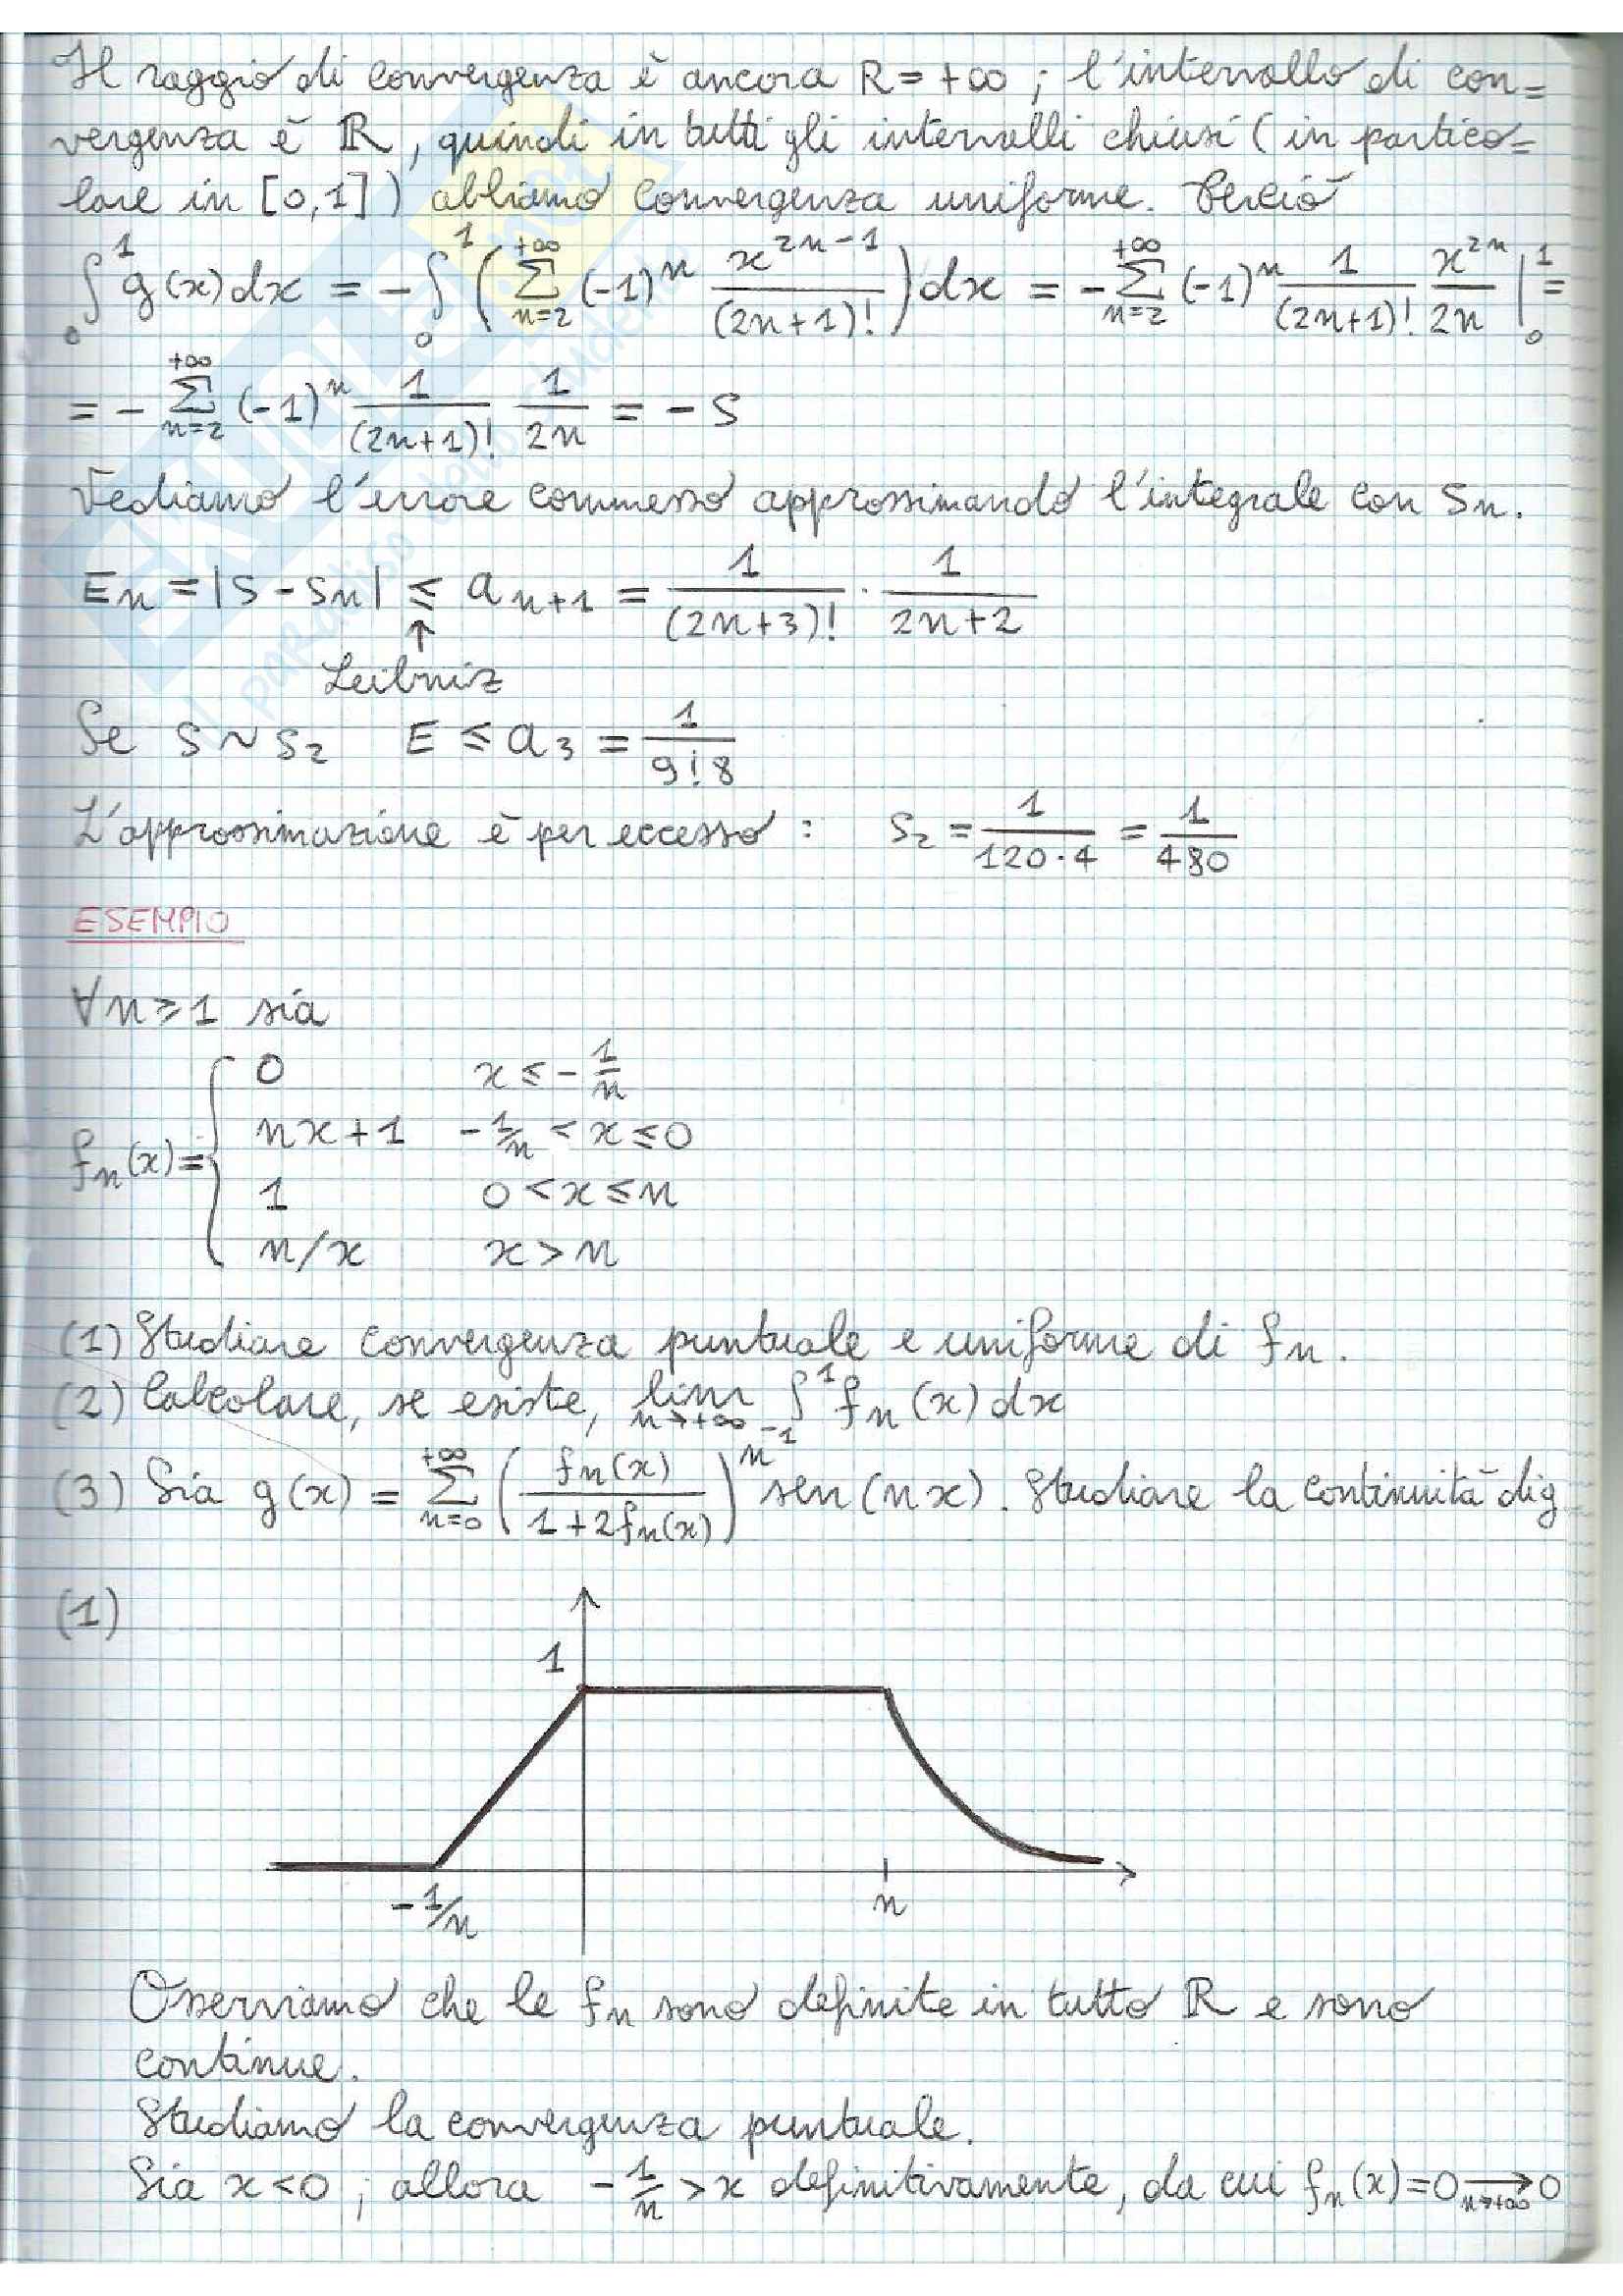 Il raggio di convergenza è ancora R = +∞ ; l'intervallo di con=
vergenza è ℝ, quindi in tutti gli intervalli chiusi (in partico=
lare in [0,1]) abbiamo convergenza uniforme. Perciò
∫₀¹ g(x)dx = -∫₀¹ (∑_{n=2}^{+∞} (-1)^n x^{2n-1}/(2n+1)!) dx = -∑_{n=2}^{+∞} (-1)^n 1/(2n+1)! x^{2n}/2n |₀¹ =
= -∑_{n=2}^{+∞} (-1)^n 1/(2n+1)! 1/2n = -S
Vediamo l'errore commesso approssimando l'integrale con Sn.
En = |S - Sn| ≤ a_{n+1} = 1/(2n+3)! · 1/(2n+2)
↑
Leibniz
Se S ~ S₂ E ≤ a₃ = 1/9!8
L'approssimazione è per eccesso : S₂ = 1/(120·4) = 1/480
ESEMPIO
∀n ≥ 1 sia
fn(x) = { 0 x ≤ -1/n
nx+1 -1/n < x ≤ 0
1 0 < x ≤ n
n/x x > n
(1) Studiare convergenza puntuale e uniforme di fn.
(2) Calcolare, se esiste, lim_{n→+∞} ∫_{-1}^{1} fn(x)dx
(3) Sia g(x) = ∑_{n=0}^{+∞} (fn(x)/(1+2fn(x)))^n sen(nx). Studiare la continuità di g
(1)
1
-1/n n
Osserviamo che le fn sono definite in tutto ℝ e sono
continue.
Studiamo la convergenza puntuale.
Sia x<0 ; allora -1/n > x definitivamente, da cui fn(x)=0 →_{n→+∞} 0